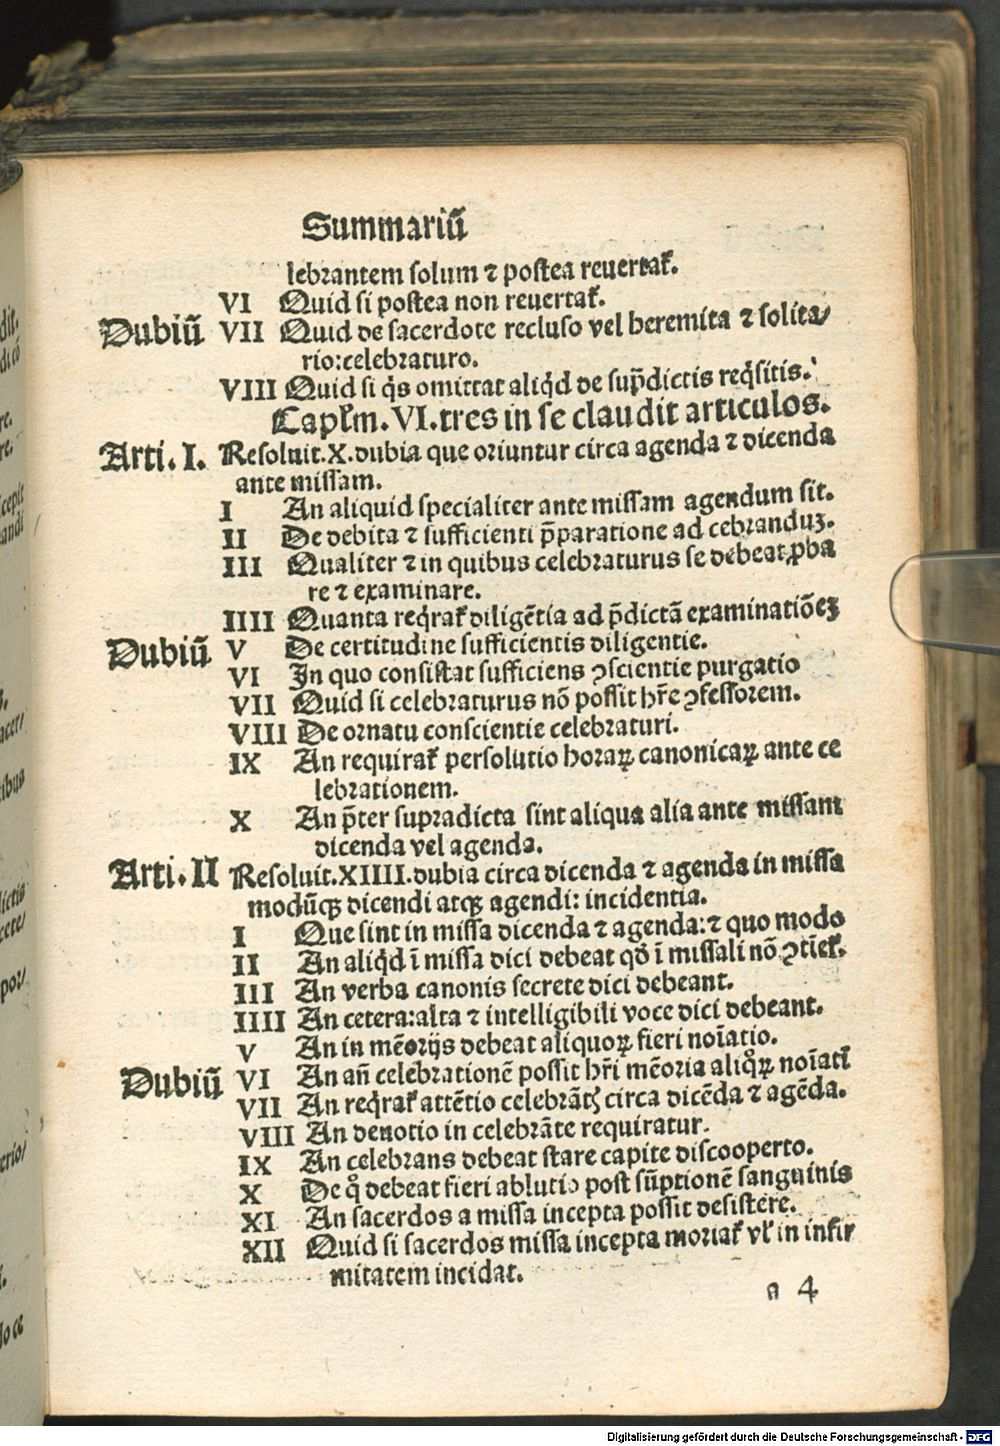 Summariū
lebrantem solum ⁊ postea reuertaꝭ.
VI Quid si postea non reuertaꝭ.
Dubiū VII Quid de sacerdote recluso vel heremita ⁊ solita/
rio:celebraturo.
VIII Quid si q̄s omittat aliq̄d de sup̄dictis req̄sitis.
Caplm. VI.tres in se claudit articulos.
Arti. I. Resoluit.X.dubia que oriuntur circa agenda ⁊ dicenda
ante missam.
I An aliquid specialiter ante missam agendum sit.
II De debita ⁊ sufficienti p̄paratione ad cebranduꝫ.
III Qualiter ⁊ in quibus celebraturus se debeat ꝓba
re ⁊ examinare.
IIII Quanta req̄raꝭ diligētia ad p̄dictā examinatiōeꝫ
Dubiū V De certitudine sufficientis diligentie.
VI In quo consistat sufficiens ꝯscientie purgatio
VII Quid si celebraturus nō possit hr̄e ꝯfessorem.
VIII De ornatu conscientie celebraturi.
IX An requiraꝭ persolutio horaꝝ canonicaꝝ ante ce
lebrationem.
X An p̄ter supradicta sint aliqua alia ante missam
dicenda vel agenda.
Arti. II Resoluit.XIIII.dubia circa dicenda ⁊ agenda in missa
modūqꝫ dicendi atqꝫ agendi: incidentia.
I Que sint in missa dicenda ⁊ agenda:⁊ quo modo
II An aliq̄d ī missa dici debeat qd̄ ī missali nō ꝯtīeꝭ.
III An verba canonis secrete dici debeant.
IIII An cetera:alta ⁊ intelligibili voce dici debeant.
V An in mēorijs debeat aliquoꝝ fieri noīatio.
Dubiū VI An an̄ celebrationē possit hr̄i mēoria aliq̊ꝝ noīatī
VII An req̄raꝭ attētio celebrātꝭ circa dicēda ⁊ agēda.
VIII An deuotio in celebrāte requiratur.
IX An celebrans debeat stare capite discooperto.
X De q̊ debeat fieri ablutio post sūptionē sanguinis
XI An sacerdos a missa incepta possit desistere.
XII Quid si sacerdos missa incepta moriaꝭ vl̓ in infir
mitatem incidat.
a 4
Digitalisierung gefördert durch die Deutsche Forschungsgemeinschaft - DFG